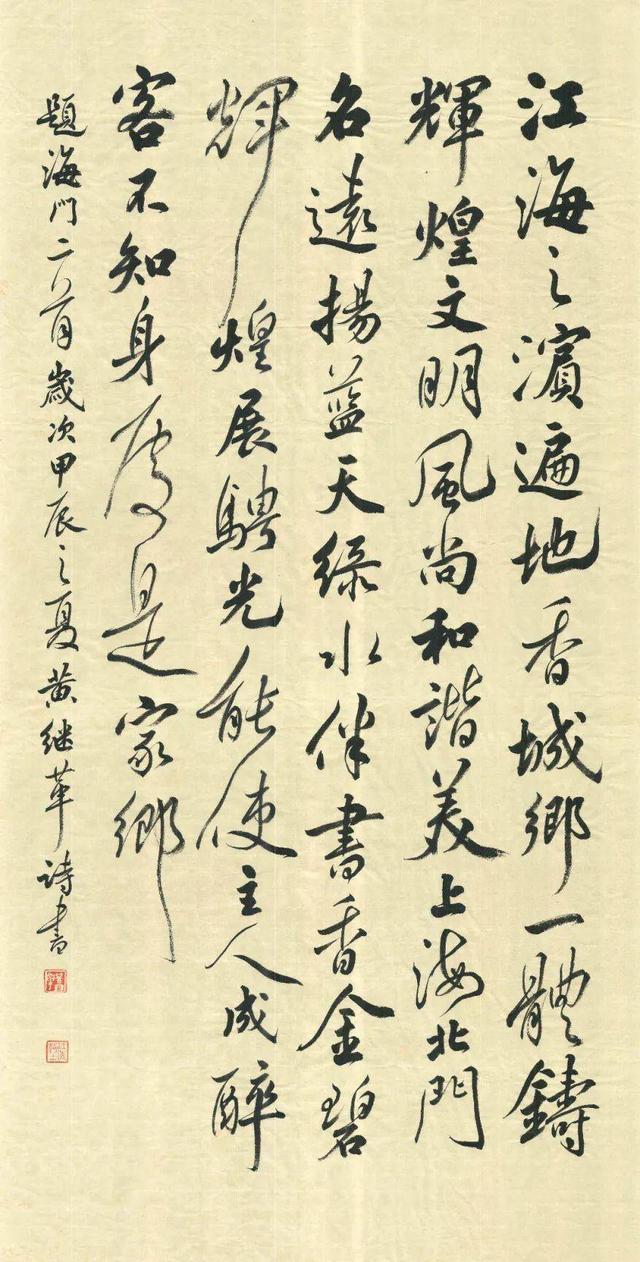 江海之濱遍地香城鄉一體鑄
輝煌文明風尚和諧美上海北門
名遠揚藍天綠水伴書香金碧
輝煌展騁光能使主人成醉
客不知身處是家鄉
題海門二首歲次甲辰之夏黄继革詩書